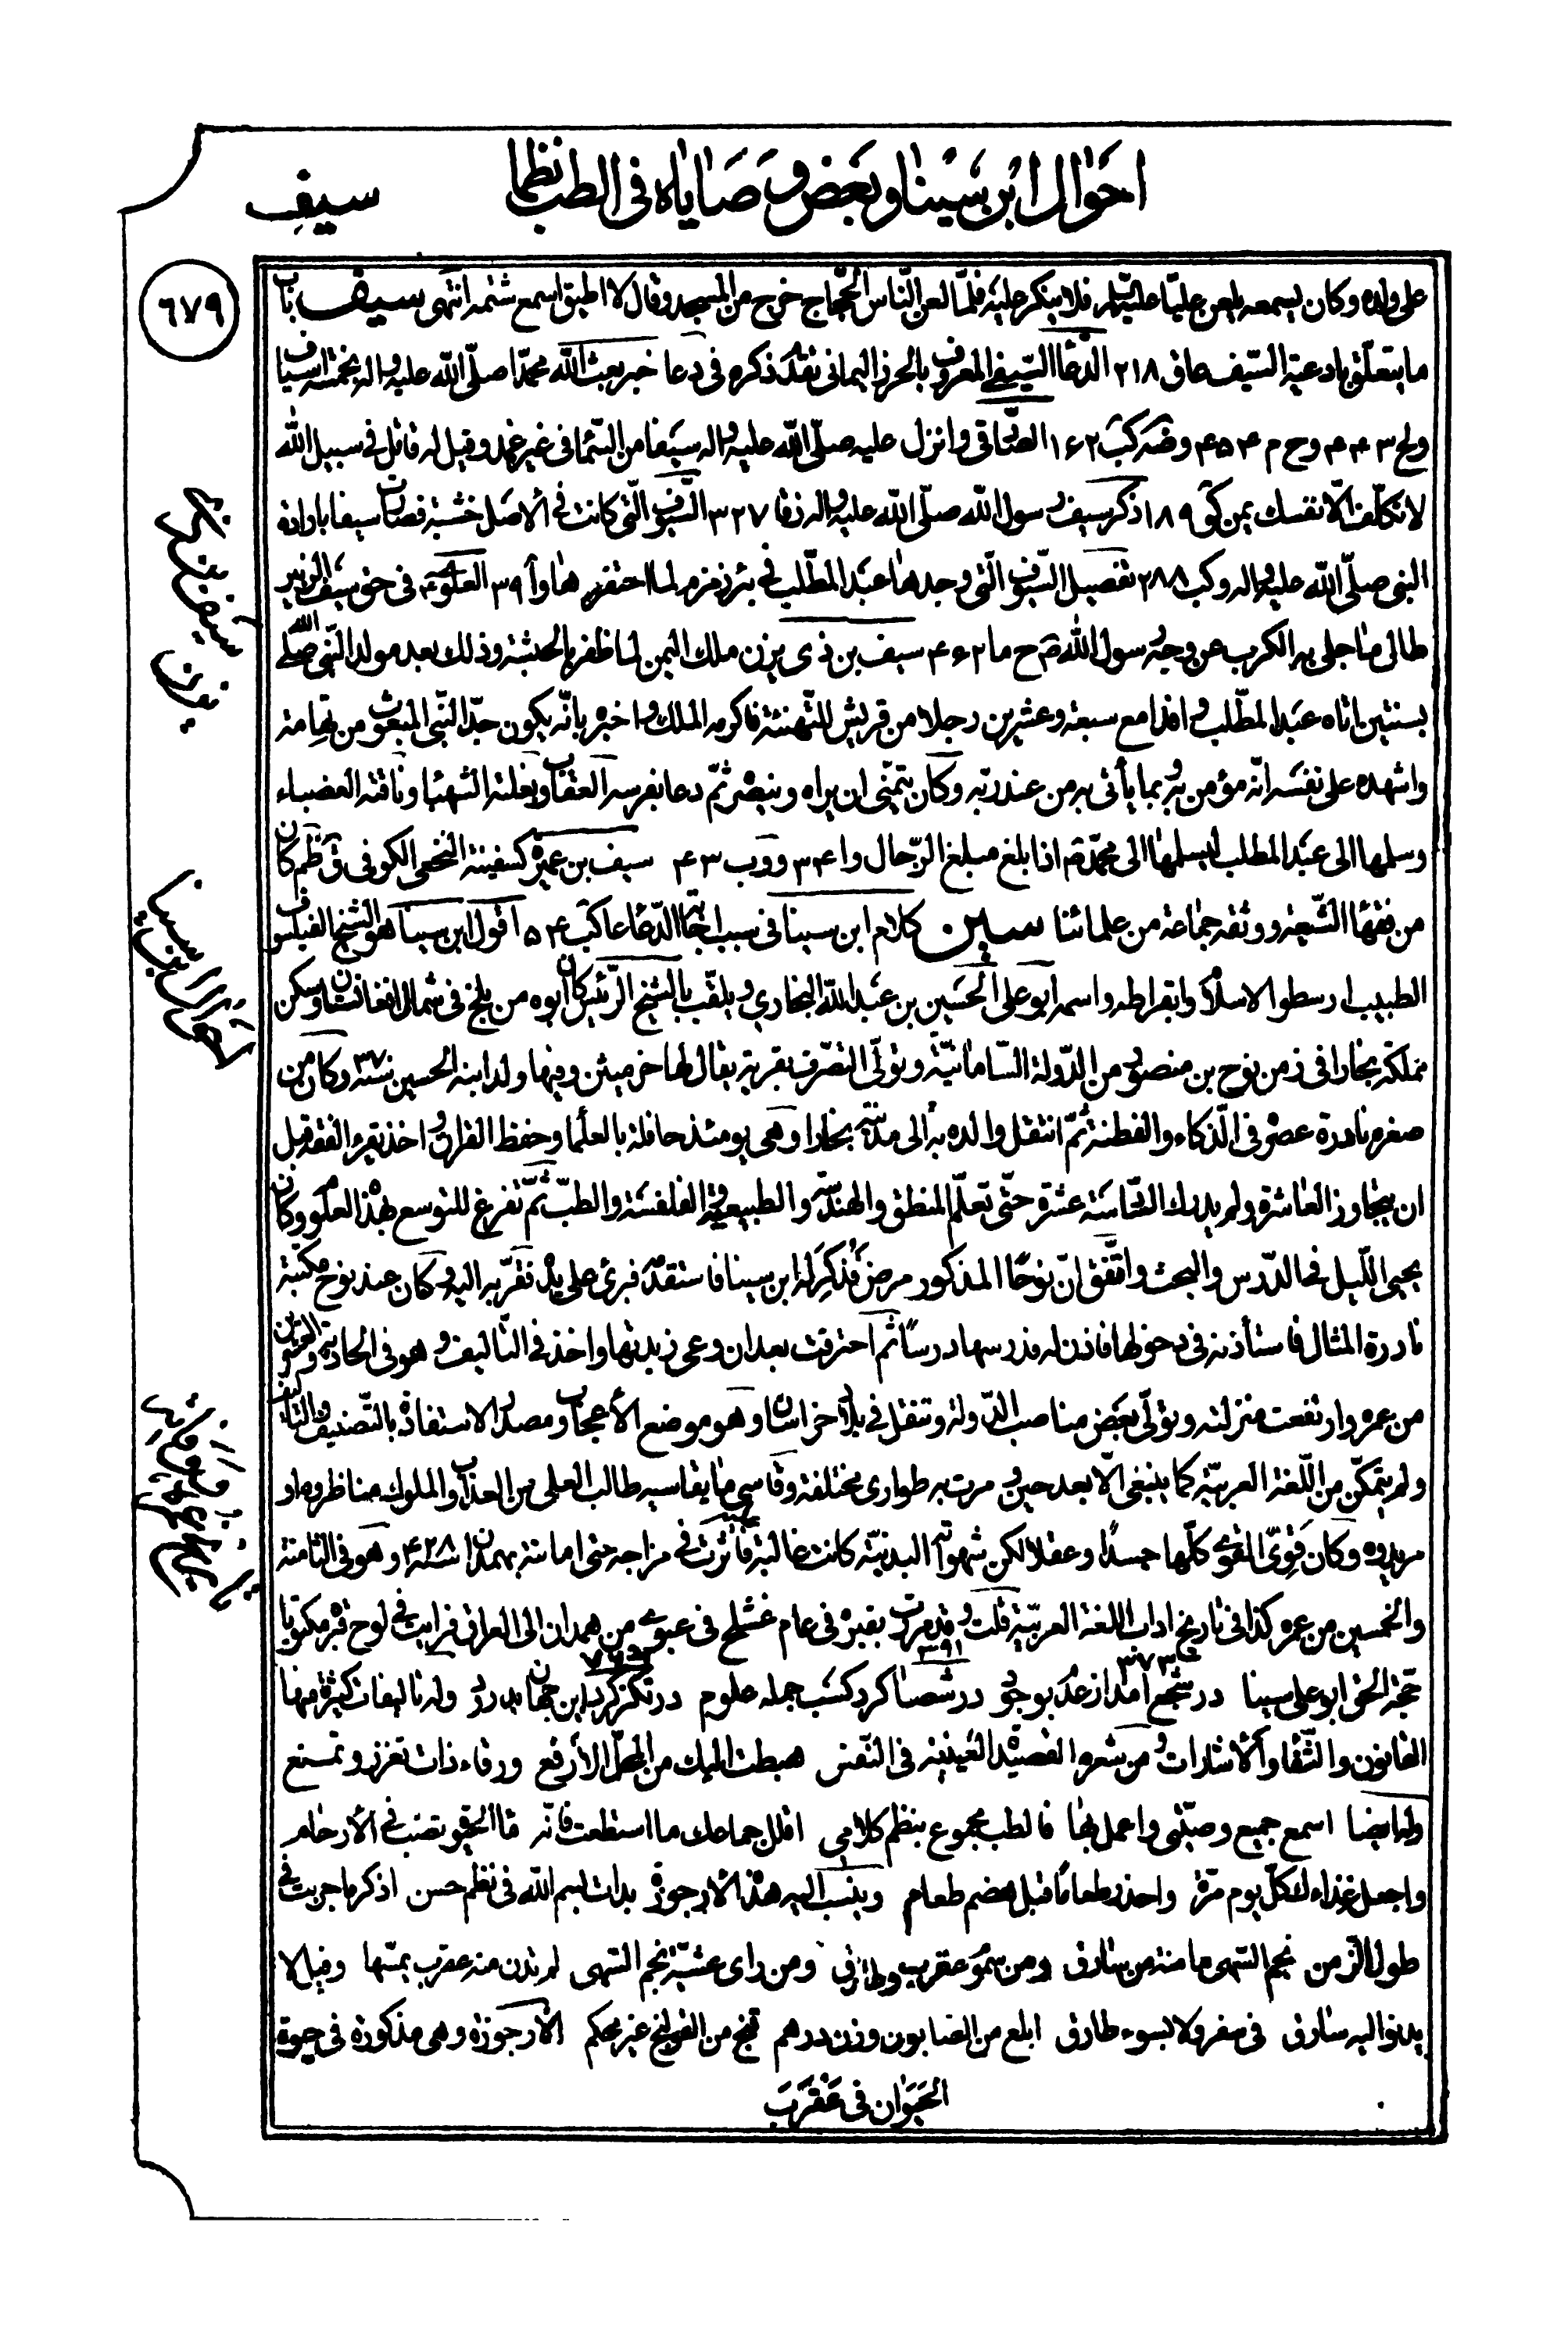 احوال ابن سينا وبعض وصاياه فى الطب نظما
سيف
٦٧٩
على ولده وكان يسمعه يلعن عليّا عليه السلام فلا ينكر عليه فلمّا لعن النّاس الحجّاج خرج من المسجد وقال لا اطيق اسمع شتمه انتهى سيف باب
ما يتعلّق بادعية السّيف عاق ٢١٨ الدّعا السّيفى المعروف بالحرز اليمانى تقدّم ذكره فى دعا خبر بعث الله محمّدا صلّى الله عليه واله بخمسة اسياف
وانزل عليه صلّى الله عليه واله سيفا من السّما فى غير غمد وقيل له قاتل فى سبيل الله
لا تكلّف الّا نفسك يمن كو ١٨٩ ذكر سيوف رسول الله صلّى الله عليه واله زفا ٣٢٧ السّيوف الّتى كانت فى الاصل خشبة فصارت سيفا باراد
النبى صلّى الله عليه واله وكب ٢٨٨ تفصيل السّيوف الّتى وجدها عبد المطّلب فى بئر زمزم لما احتفرها وأ ٣٩ العلوى فى حق سيف الزبير
طالما جلى به الكرب عن وجه رسول الله ص ح ما ٤٦٢ سيف بن ذى يزن ملك اليمن لما ظفر بالحبشة وذلك بعد مولد النّبى صلى الله
بسنتين اتاه عبد المطّلب وافدا مع سبعة وعشرين رجلا من قريش للتّهنئة فاكرمه الملك واخبره بانّه يكون جدّ النّبى المبعوث من تهامة
واشهده على نفسه انّه مؤمن به وبما يأتى به من عند ربّه وكان يتمنّى ان يراه وينصره ثمّ دعا بفرسه العقاب وبغلته الشهبا وناقته العضباء
وسلمها الى عبد المطلب ليسلمها الى محمّد ص اذا بلغ مبلغ الرّجال وا ٣٤ ووب ٤٣ سيف بن عميرة كسفينة النخعى الكوفى ق ظم كان
من فقها الشّيعة ووثقه جماعة من علمائنا سين كلام ابن سينا فى سبب اجابة الدّعا عاكب ٥٤ اقول ابن سينا هو الشيخ الفيلسوف
الطبيب ارسطو الاسلام وابقراطه واسمه ابو على الحسين بن عبد الله البخارى ويلقّب بالشيخ الرّئيس كان أبوه من بلخ فى شمال افغانستان وسكن
مملكة بخارا فى زمن نوح بن منصور من الدّولة السّامانيّة وتولّى التصرّف بقرية يقال لها خرميثن وفيها ولد ابنه الحسين سنة ٣٧٠ وكان من
صغره نادرة عصره فى الذّكاء والفطنة ثمّ انتقل والده به الى مدينة بخارا وهى يومئذ حافلة بالعلما وحفظ القرآن واخذ يقرء الفقه قبل
ان يتجاوز العاشرة ولم يدرك السّادسة عشرة حتّى تعلّم المنطق والهندسة والطبيعيّة والفلسفة والطبّ ثمّ تفرغ للتوسع بهذه العلوم وكان
يحيى اللّيل فى الدّرس والبحث واتّفق انّ نوحًا المذكور مرض فذكر له ابن سينا فاستقدمه فبرئ على يده فقرّبه اليه وكان عند نوح مكتبة
نادرة المثال فاستأذنه فى دخولها فاذن له فدرسها درسًا ثم احترقت بعد ان وعى زبدتها واخذ فى التأليف وهو فى الحادية والعشرين
من عمره وارتفعت منزلته وتولّى بعض مناصب الدّولة وتنقل فى بلاد خراسان وهو موضع الأعجاب ومصدر الاستفادة بالتّصنيف والتأليف
ولم يتمكّن من اللّغة العربيّة كما ينبغى الّا بعد حين ومرت به طوارى مختلفة وقاسى ما يقاسيه طالب العلى من العذاب والملوك مناظروه او
مريدوه وكان قوىّ القوى كلّها جسدًا وعقلا لكن شهواته البدنيّة كانت غالبة فأثرت فى مزاجه حتى اماتته بهمدان سنة ٤٢٨ وهو فى الثامنة
والخمسين من عمره كذا فى تاريخ اداب اللغة العربيّة قلت وقد مررت بقبره فى عام غشلح فى عبورى من همدان الى العراق فرايت فى لوح قبره مكتوبا
حجّة الحق ابو على سينا در شجع ٣٧٣ امد از عدم بوجود در شصا ٣٩١ كرد كسب جمله علوم در تكز كرد اين جهان بدرود وله تاليفات كثيرة منها
القانون والشّفا والاشارات ومن شعره القصيدة العينيّة فى النّفس هبطت اليك من المحلّ الأرفع ورقاء ذات تعزز وتمنع
وله ايضا اسمع جميع وصيّتى واعمل بها فالطب مجموع بنظم كلامى اقلل جماعك ما استطعت فانّه ماء الحيوة تصب فى الأرحام
واجعل غذاءك كلّ يوم مرّة واحذر طعامًا قبل هضم طعام وينسب اليه هذه الأرجوزة بدات بسم الله فى نظم حسن اذكر ما جربت فى
طول الزّمن نجم السّهى مامنة من سارق ومن سموم عقرب وطارق ومن راى عشيّة نجم السهى لم تدن منه عقرب يمسّها وقيل لا
يدنو اليه سارق فى سفر ولا بسوء طارق ابلع من الصابون وزن درهم تنج من القولنج غير محكم الأرجوزة وهى مذكورة فى حيوة
الحيوان فى عقرب
سيف بن ذى
يزن
احوال ابن سينا